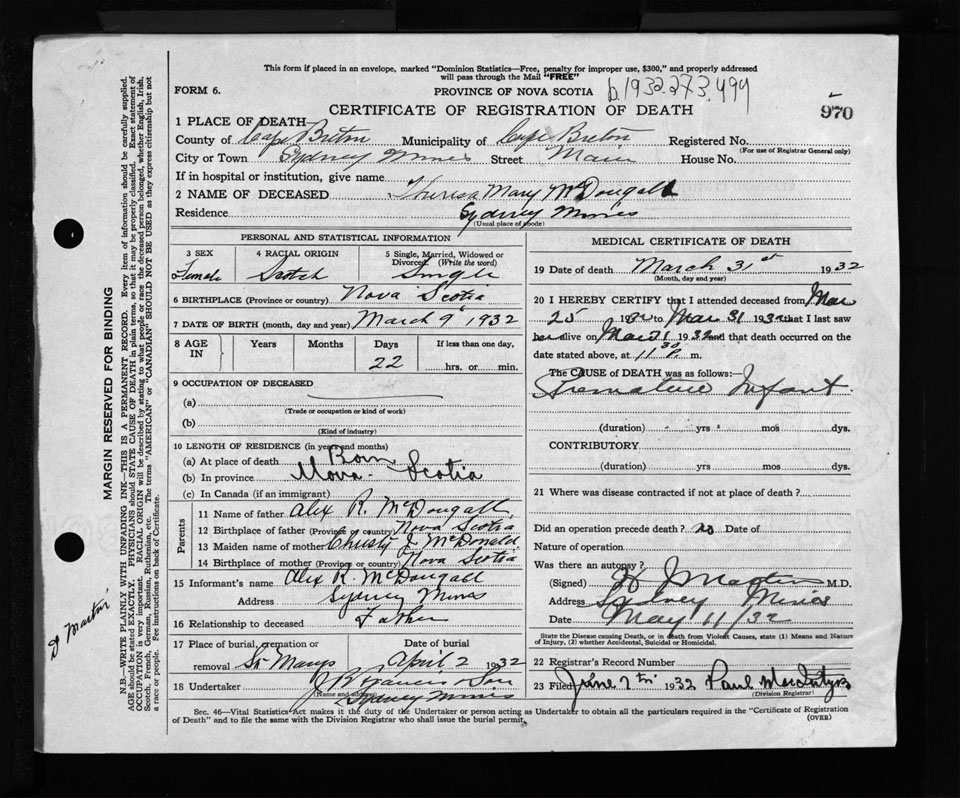 This form if placed in an envelope, marked "Dominion Statistics—Free, penalty for improper use, $300," and properly addressed
will pass through the Mail "FREE"
FORM 6.
PROVINCE OF NOVA SCOTIA
b1932.273.499
970
CERTIFICATE OF REGISTRATION OF DEATH
1 PLACE OF DEATH
County of Cape Breton Municipality of Cape Breton Registered No.
(For use of Registrar General only)
City or Town Sydney Mines Street Main House No.
If in hospital or institution, give name
2 NAME OF DECEASED Theresa Mary McDougall
Residence Sydney Mines
(Usual place of abode)
PERSONAL AND STATISTICAL INFORMATION
3 SEX 4 RACIAL ORIGIN 5 Single, Married, Widowed or
Divorced. (Write the word)
Female Scotch Single
6 BIRTHPLACE (Province or country) Nova Scotia
7 DATE OF BIRTH (month, day and year) March 9 1932
8 AGE IN Years Months Days If less than one day,
22 hrs. or min.
9 OCCUPATION OF DECEASED
(a)
(Trade or occupation or kind of work)
(b)
(Kind of industry)
10 LENGTH OF RESIDENCE (in years and months)
(a) At place of death Born
(b) In province Nova Scotia
(c) In Canada (if an immigrant)
Parents
11 Name of father Alex R. McDougall
12 Birthplace of father (Province or country) Nova Scotia
13 Maiden name of mother Christy J. McDonald
14 Birthplace of mother (Province or country) Nova Scotia
15 Informant's name Alex R. McDougall
Address Sydney Mines
16 Relationship to deceased Father
17 Place of burial, cremation or Date of burial
removal St Marys April 2 1932
18 Undertaker J B Francis & Son
(Name and address) Sydney Mines
MEDICAL CERTIFICATE OF DEATH
19 Date of death March 31st 1932
(Month, day and year)
20 I HEREBY CERTIFY that I attended deceased from Mar
25 1932 to Mar 31 1932 that I last saw
her alive on Mar 31 1932 and that death occurred on the
date stated above, at 11 30 P. m.
The CAUSE of DEATH was as follows:
Premature Infant
(duration) yrs mos dys.
CONTRIBUTORY
(duration) yrs mos dys.
21 Where was disease contracted if not at place of death?
Did an operation precede death? no Date of
Nature of operation
Was there an autopsy?
(Signed) Martin M.D.
Address Sydney Mines
Date May 11/32
State the Disease causing Death, or in death from Violent Causes, state (1) Means and Nature
of Injury, (2) whether Accidental, Suicidal or Homicidal.
22 Registrar's Record Number
23 Filed June 7th 1932 Paul MacIntyre
(Division Registrar)
Sec. 46—Vital Statistics Act makes it the duty of the Undertaker or person acting as Undertaker to obtain all the particulars required in the "Certificate of Registration
of Death" and to file the same with the Division Registrar who shall issue the burial permit.
(OVER)
MARGIN RESERVED FOR BINDING
N.B.—WRITE PLAINLY WITH UNFADING INK—THIS IS A PERMANENT RECORD. Every item of information should be carefully supplied.
AGE should be stated EXACTLY. PHYSICIANS should STATE CAUSE OF DEATH in plain terms, so that it may be properly classified. Exact statement of
OCCUPATION is very important. RACIAL ORIGIN will be described by stating to what people or race the deceased person belonged, whether English, Irish,
Scotch, French, German, Russian, Ruthenian, etc. The terms "AMERICAN" or "CANADIAN" SHOULD NOT BE USED as they express citizenship but not
a race or people. Fee instructions on back of Certificate.
Dr Martin